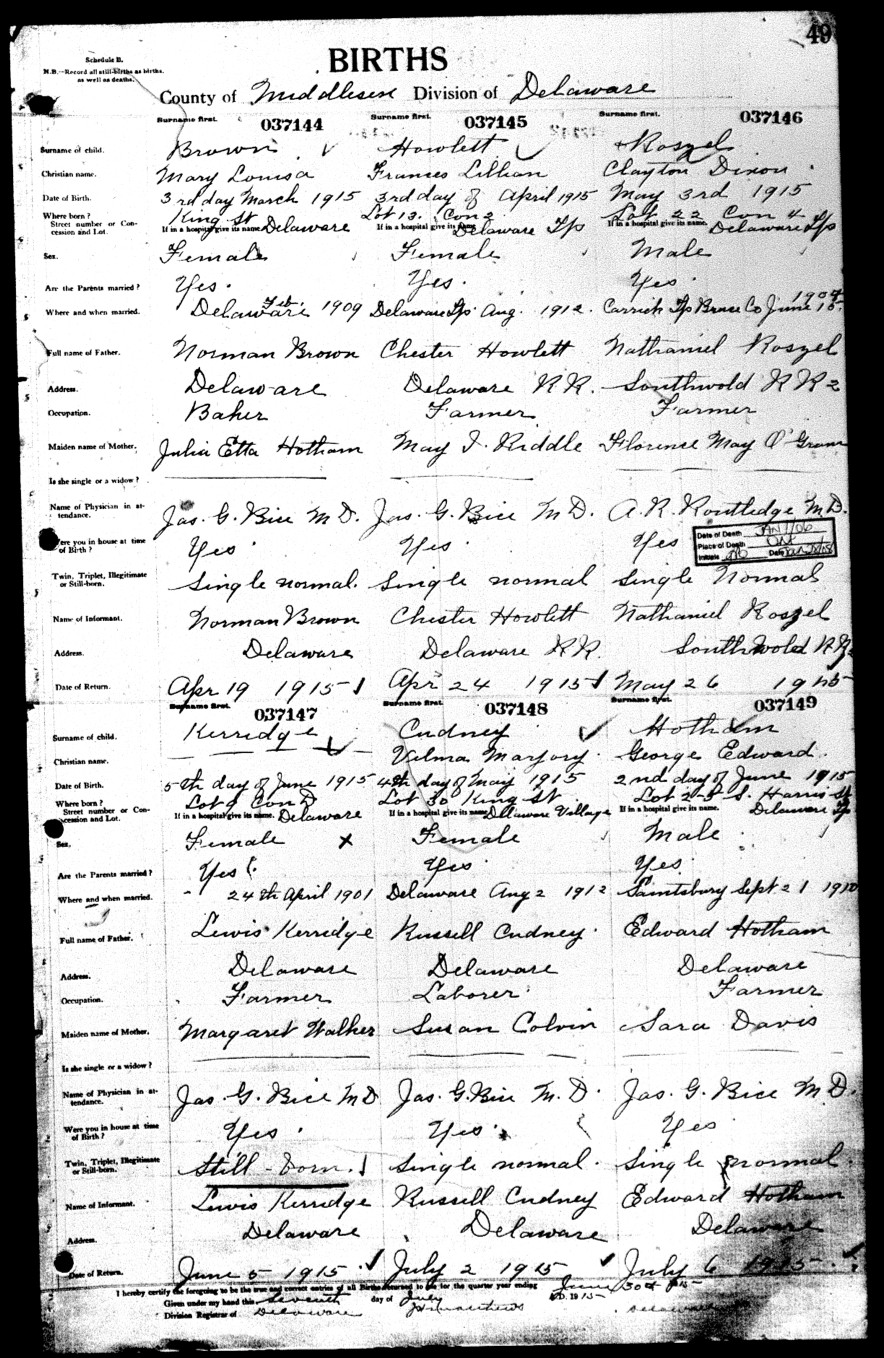 49
Schedule B.
N.B.—Record all still-births as births, as well as deaths.
BIRTHS
County of Middlesex Division of Delaware
Surname first. 037144 Surname first. 037145 Surname first. 037146
Surname of child. Brown Howlett Roszel
Christian name. Mary Louisa Frances Lillian Clayton Dixon
Date of Birth. 3rd day March 1915 3rd day of April 1915 May 3rd 1915
Where born? King St Lot 13. Con 2 Lot 22 Con 4
Street number or Concession and Lot. If in a hospital give its name. Delaware If in a hospital give its name Delaware Tp If in a hospital give its name. Delaware Tp
Sex. Female Female Male
Are the Parents married? Yes. Yes. Yes.
Where and when married. Delaware Feb. 1909 Delaware Tp. Aug. 1912. Carrick Tp Bruce Co June 15. 1904
Full name of Father. Norman Brown Chester Howlett Nathaniel Roszel
Address. Delaware Delaware R R. Southwold R R 2
Occupation. Baker Farmer Farmer
Maiden name of Mother. Julia Etta Hotham May I. Riddle Florence May O'Gram
Is she single or a widow?
Name of Physician in attendance. Jas. G. Bice M D. Jas. G. Bice M D. A. R. Routledge M D.
Were you in house at time of Birth? Yes Yes. Yes
Date of Death JAN 1/06
Place of Death ONT
Initials Date
Twin, Triplet, Illegitimate or Still-born. Single normal. Single normal Single Normal
Name of Informant. Norman Brown Chester Howlett Nathaniel Roszel
Address. Delaware Delaware R R. Southwold R R 2
Date of Return. Apr 19 1915 Apr 24 1915 May 26 1915
Surname first. 037147 Surname first. 037148 Surname first. 037149
Surname of child. Kerridge Cudney Hotham
Christian name. Velma Marjory. George Edward.
Date of Birth. 5th day of June 1915 4th day of May 1915 2nd day of June 1915
Where born? Lot 9 Con D Lot 30 King St Lot 2 S. Harris St
Street number or Concession and Lot. If in a hospital give its name. Delaware If in a hospital give its name Delaware Village If in a hospital give its name. Delaware Tp
Sex. Female x Female Male
Are the Parents married? Yes Yes Yes
Where and when married. 24th April 1901 Delaware Aug 2 1912 Saintsbury Sept 21 1910
Full name of Father. Lewis Kerridge Russell Cudney. Edward Hotham
Address. Delaware Delaware Delaware
Occupation. Farmer Laborer Farmer
Maiden name of Mother. Margaret Walker Susan Colvin Sara Davis
Is she single or a widow?
Name of Physician in attendance. Jas. G. Bice M D Jas. G. Bice M. D. Jas. G. Bice M D.
Were you in house at time of Birth? Yes Yes. Yes
Twin, Triplet, Illegitimate or Still-born. Still-born. Single normal. Single normal.
Name of Informant. Lewis Kerridge Russell Cudney Edward Hotham
Address. Delaware Delaware Delaware
Date of Return. June 5 1915 July 2 1915 July 6 1915
I hereby certify the foregoing to be the true and correct entries of all Births returned to me for the quarter year ending June 30th 1915
Given under my hand this seventh day of July A.D. 1915
Division Registrar of Delaware